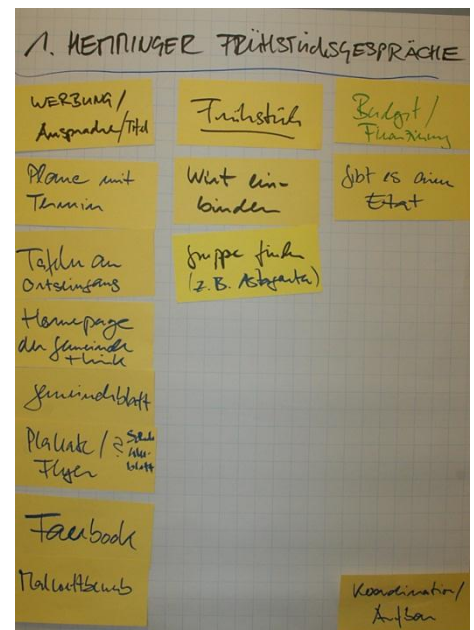 1. HEMMINGER FRÜHSTÜCKSGESPRÄCHE
WERBUNG/
Ansprache/Titel
Plane mit
Termin
Tafeln am
Ortseingang
Homepage
der Gemeinde
+ Link
Gemeindeblatt
Plakate / ?
Flyer
Facebook
Malwettbewerb
Frühstück
Wirt ein-
binden
Gruppe finden
(z.B. Astogenta)
Budget/
Finanzierung
Gibt es einen
Etat
Koordination/
Aufbau